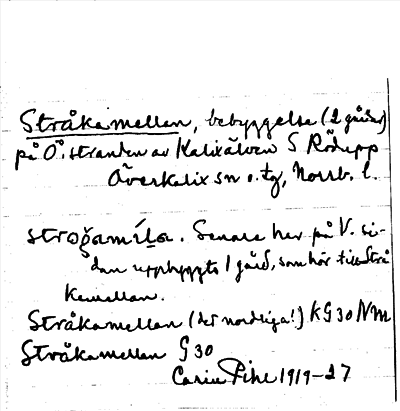 Stråkamellan, bebyggelse (2 gårdar)
på Ö. stranden av Kalixälven S Rödupp
Överkalix sn o. tg, Norrb. l.
stroğamíla. Senare har på V. si-
dan uppbyggts 1 gård, som hör till Strå
kamellan.
Stråkamellan (det nordliga!) KG30 NM
Stråkamellan G30
Carin Pihl 1919-27